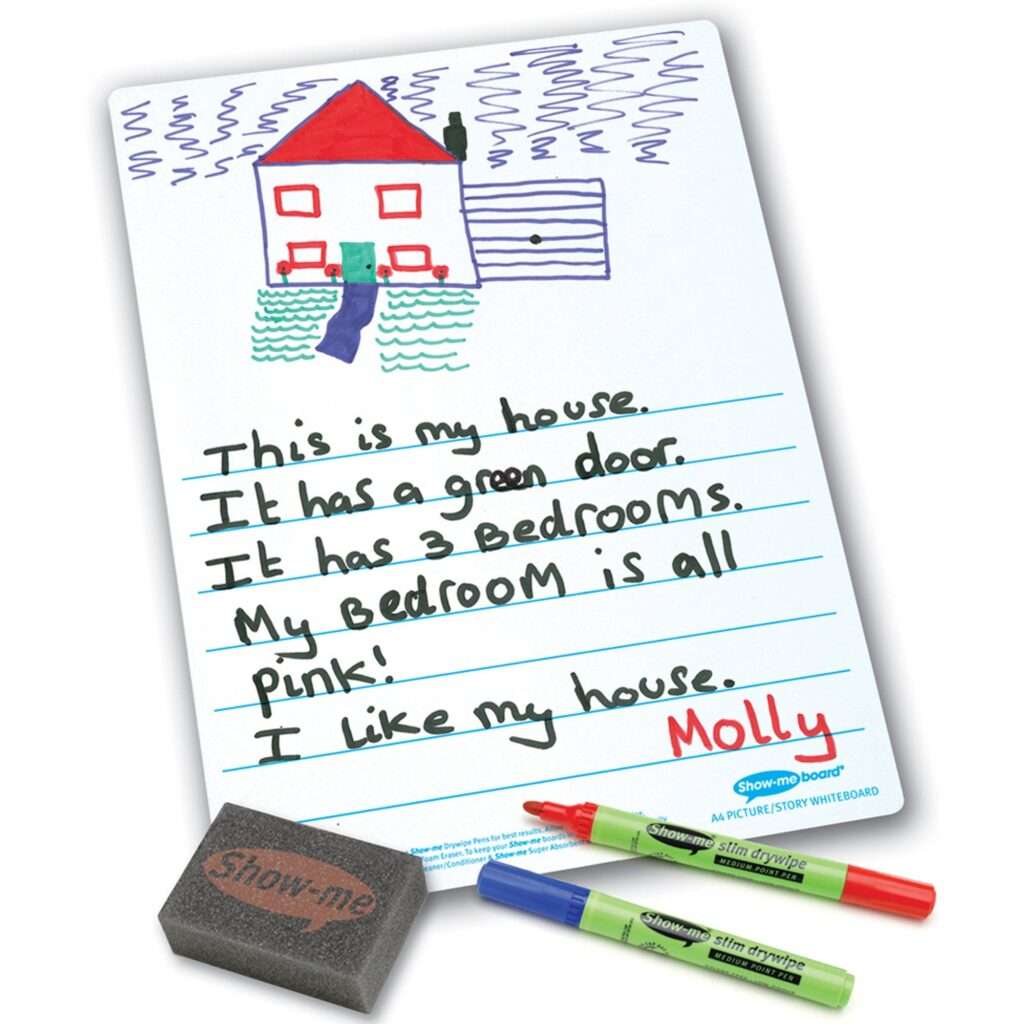 This is my house.
It has a green door.
It has 3 Bedrooms.
My Bedroom is all
pink!
I like my house.
Molly
Show-me board®
A4 PICTURE/STORY WHITEBOARD
Show-me Drywipe Pens for best results.
foam Eraser. To keep your Show-me boards
Cleaner/Conditioner & Show-me Super Absorbent
Show-me
Show-me slim drywipe
MEDIUM POINT PEN
Show-me slim drywipe
MEDIUM POINT PEN